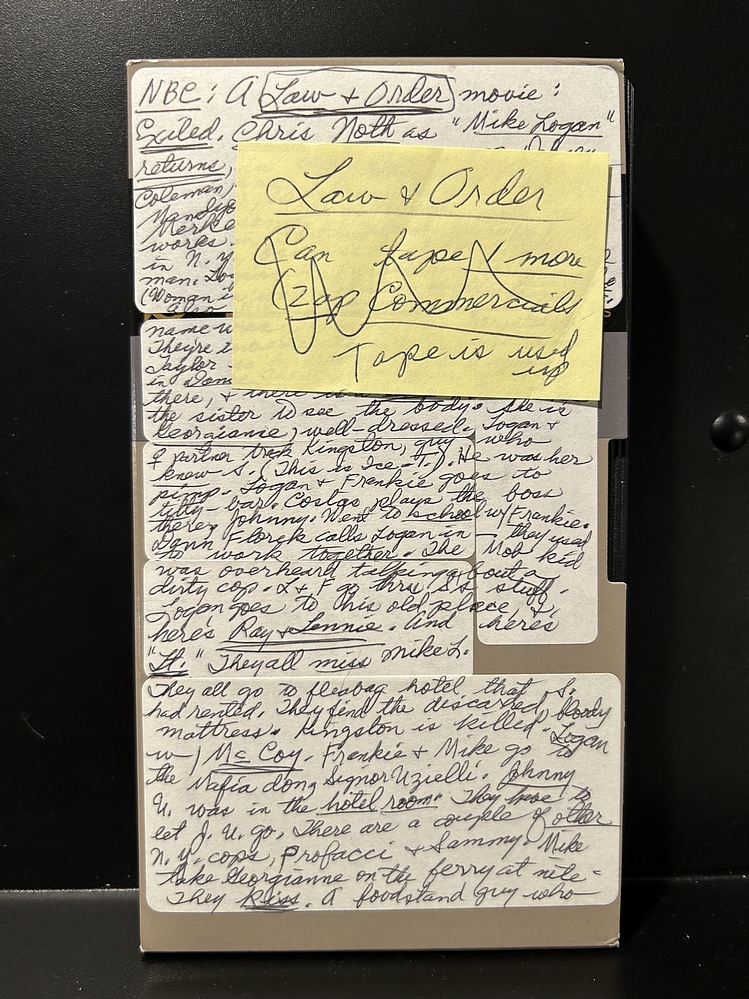 NBC: A Law & Order movie:
Exiled. Chris Noth as "Mike Logan"
returns,
Coleman)
Merke
works
in N.Y
man. Lo
(Woman i
also
Law & Order
Can tape & more
(Zap Commercials
Tape is used
up
name w
They're i
Taylor
in Dam
there, & there is
the sister to see the body. She is
Georgianne, well-dressed. Logan &
& partner trak Kingston, guy who
knew S. (This is Ice-T.) He was her
pimp. Logan & Frankie goes to
titty-bar. Costas plays the boss
there, Johnny. Went to school w/ Frankie.
Dann Florek calls Logan in — they used
to work together. The Mob kid
was overheard talking about a
dirty cop. L & F go thru S's stuff.
Logan goes to his old place, &
here's Ray & Lennie. And here's
"Lt." They all miss Mike L.
They all go to fleabag hotel that S.
had rented. They find the discarded, bloody
mattress. Kingston is killed. Logan
w/ McCoy. Frankie & Mike go to
the Mafia don, Signor Uzielli. Johnny
U. was in the hotel room. They have to
let J. U. go. There are a couple of other
N.Y. cops, Profacci & Sammy. Mike
take Georgianne on the ferry at nite -
They kiss. A foodstand guy who